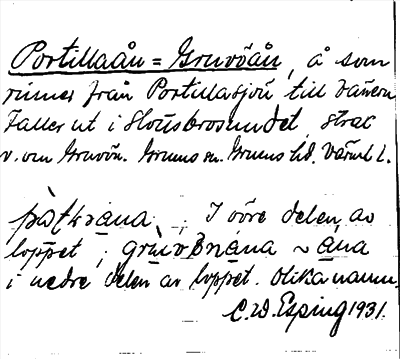 Portillaån = Gruvöån, å som
rinner från Portillasjön till Vänern
Faller ut i Slottsbrosundet, strax
v. om Gruvön. Grums sn. Grums hd. Värml l.
I övre delen av
loppet; ~ åna
i nedre delen av loppet. Olika namn.
C.W. Esping 1931.